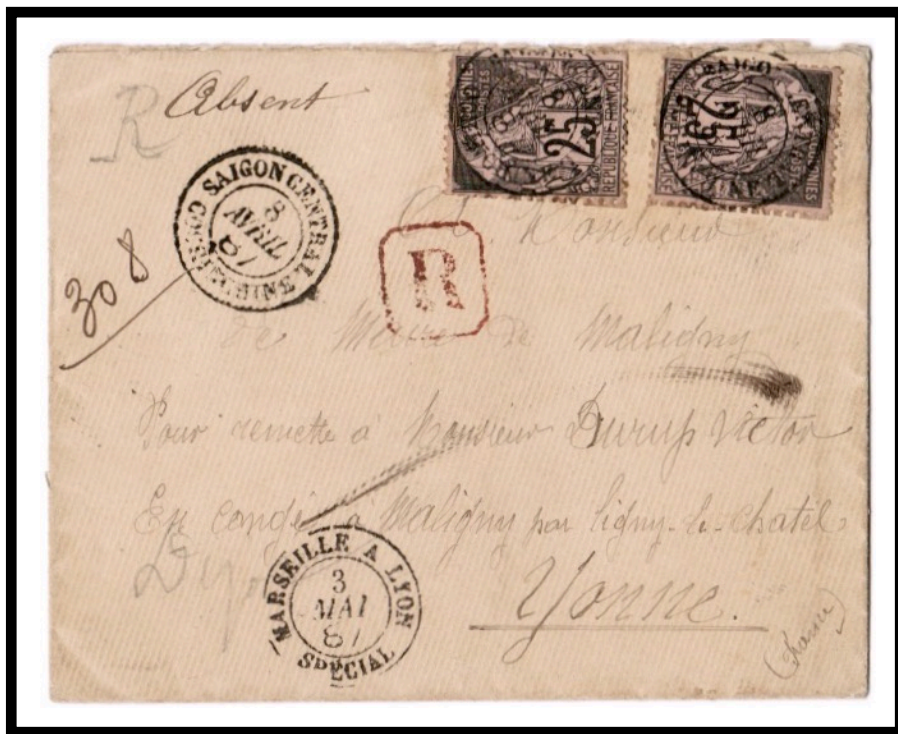 R
Absent
25
RÉPUBLIQUE FRANÇAISE
25
SAIGON CENTRAL
3
AVRIL
87
COCHINCHINE
308
R
Monsieur
Le Maire de Maligny
Pour remettre à Monsieur Durup Victor
En congé a Maligny par Ligny-le-Chatel
Yonne.
(France)
MARSEILLE A LYON
3
MAI
87
SPÉCIAL